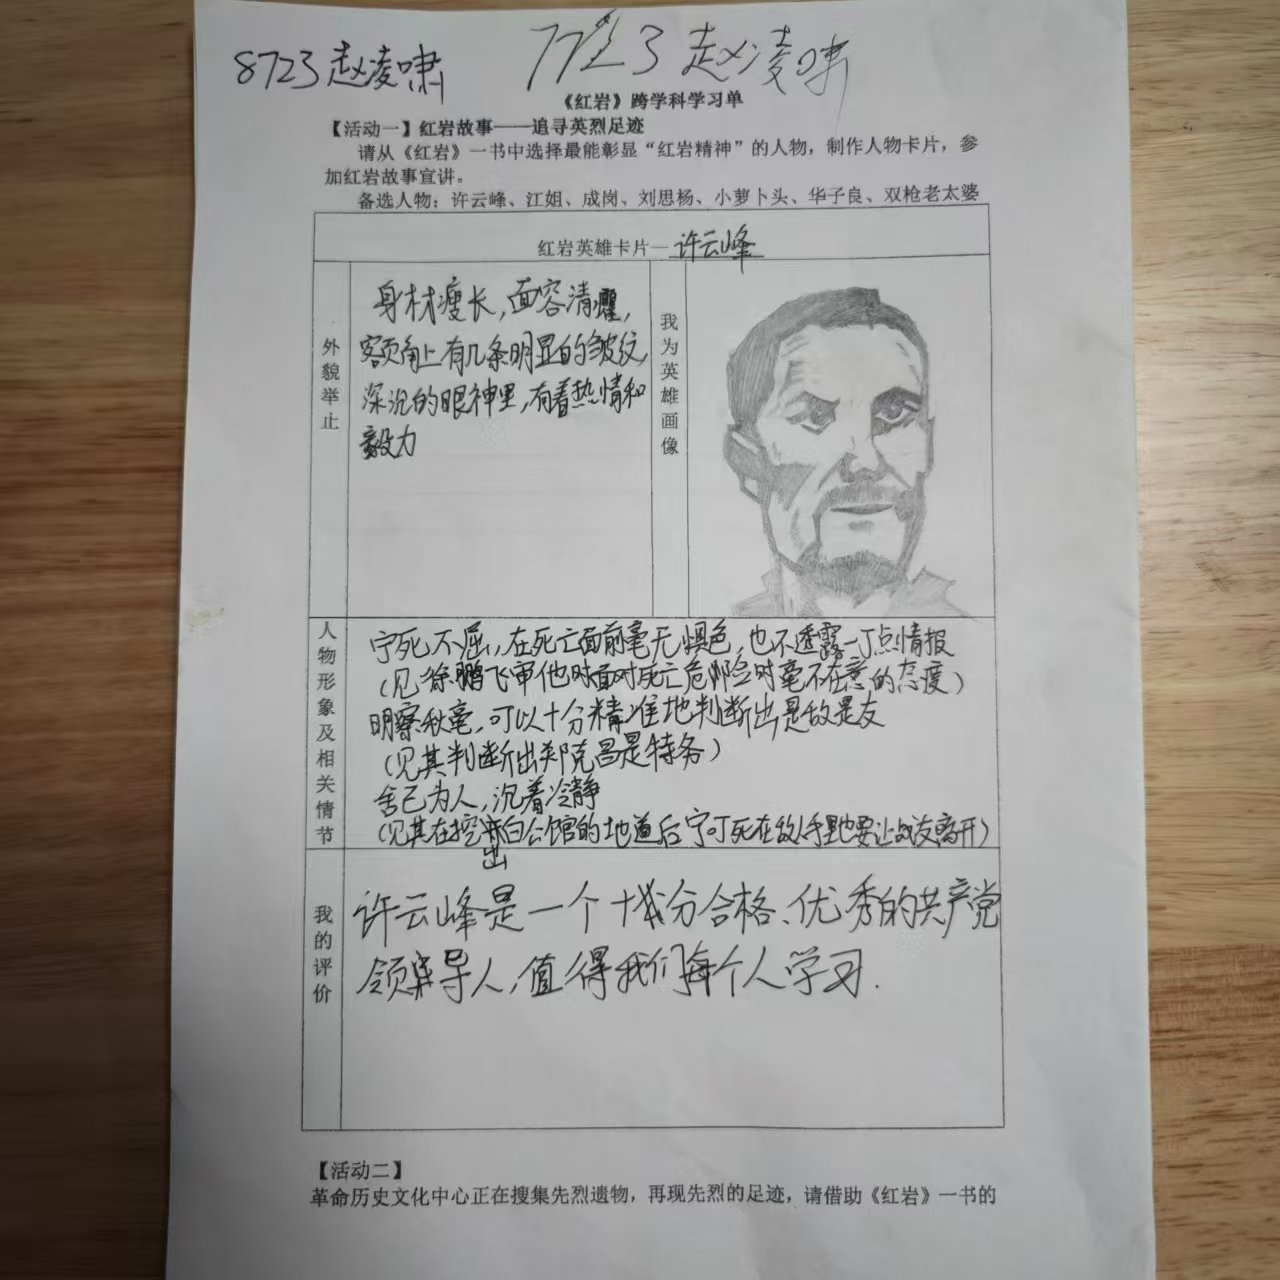 8723赵凌啸
7723赵凌啸
《红岩》跨学科学习单
【活动一】红岩故事——追寻英烈足迹
请从《红岩》一书中选择最能彰显“红岩精神”的人物，制作人物卡片，参
加红岩故事宣讲。
备选人物：许云峰、江姐、成岗、刘思杨、小萝卜头、华子良、双枪老太婆
红岩英雄卡片—许云峰
外貌举止
身材瘦长，面容清癯，
额角上有几条明显的皱纹，
深沉的眼神里，有着热情和
毅力
我为英雄画像
人物形象及相关情节
宁死不屈，在死亡面前毫无惧色，也不透露一丁点情报
（见徐鹏飞审他时面对死亡危险时毫不在意的态度）
明察秋毫，可以十分精准地判断出是敌是友
（见其判断出郑克昌是特务）
舍己为人，沉着冷静
（见其在挖出白公馆的地道后宁可死在敌人手里也要让战友离开）
我的评价
许云峰是一个十分合格、优秀的共产党
领导人，值得我们每个人学习.
【活动二】
革命历史文化中心正在搜集先烈遗物，再现先烈的足迹，请借助《红岩》一书的